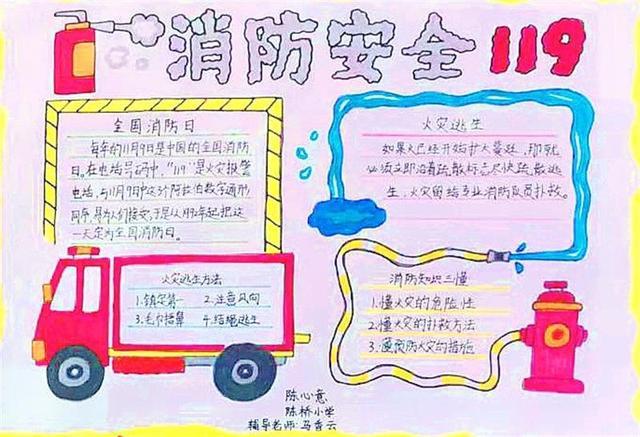 消防安全119
全国消防日
每年的11月9日是中国的全国消防
日。在电话号码中，"119"是火灾报警
电话，与11月9日中这3个阿拉伯数字
同序，于是从1992年起把这
一天定为全国消防日。
火灾逃生
如果火已经开始扩大蔓延，那就
必须立即沿着疏散标志尽快疏散逃
生，火灾留给专业消防队员扑救。
火灾逃生方法
1.镇定第一 2.注意风向
3.毛巾捂鼻 4.结绳逃生
消防知识三懂
1.懂火灾的危险性
2.懂火灾的扑救方法
3.懂预防火灾的措施
陈心意
陈桥小学
辅导老师:马香云